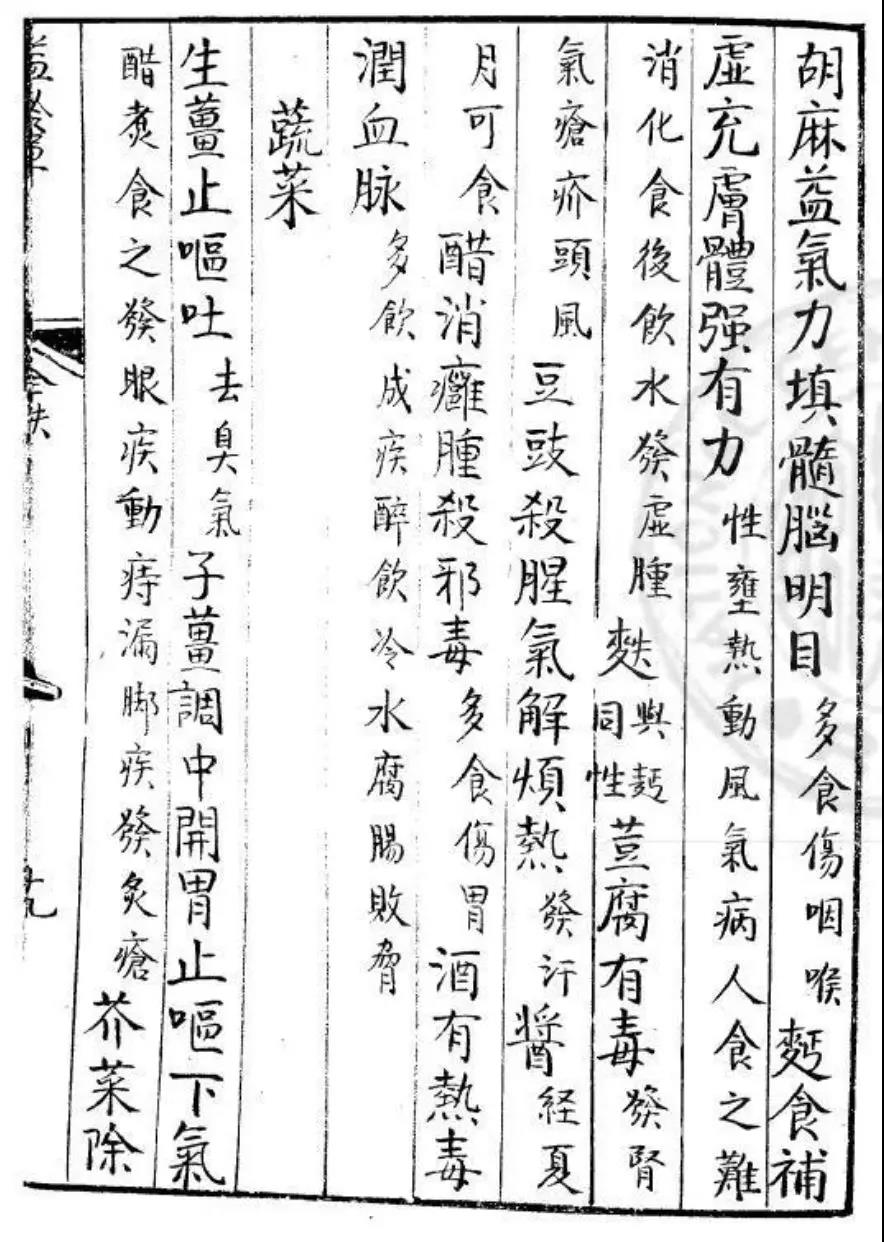 胡麻益氣力填髓腦明目多食傷咽喉麪食補
虛充膚體强有力性壅熱動風氣病人食之難
消化食後飲水發虛腫麩與麪同性荳腐有毒發腎
氣瘡疥頭風豆豉殺腥氣解煩熱發汗醬経夏
月可食醋消癰腫殺邪毒多食傷胃酒有熱毒
潤血脉多飲成疾醉飲冷水腐腸敗胷
蔬菜
生薑止嘔吐去臭氣子薑調中開胃止嘔下氣
醋煑食之發眼疾動痔漏脚疾發炙瘡芥菜除